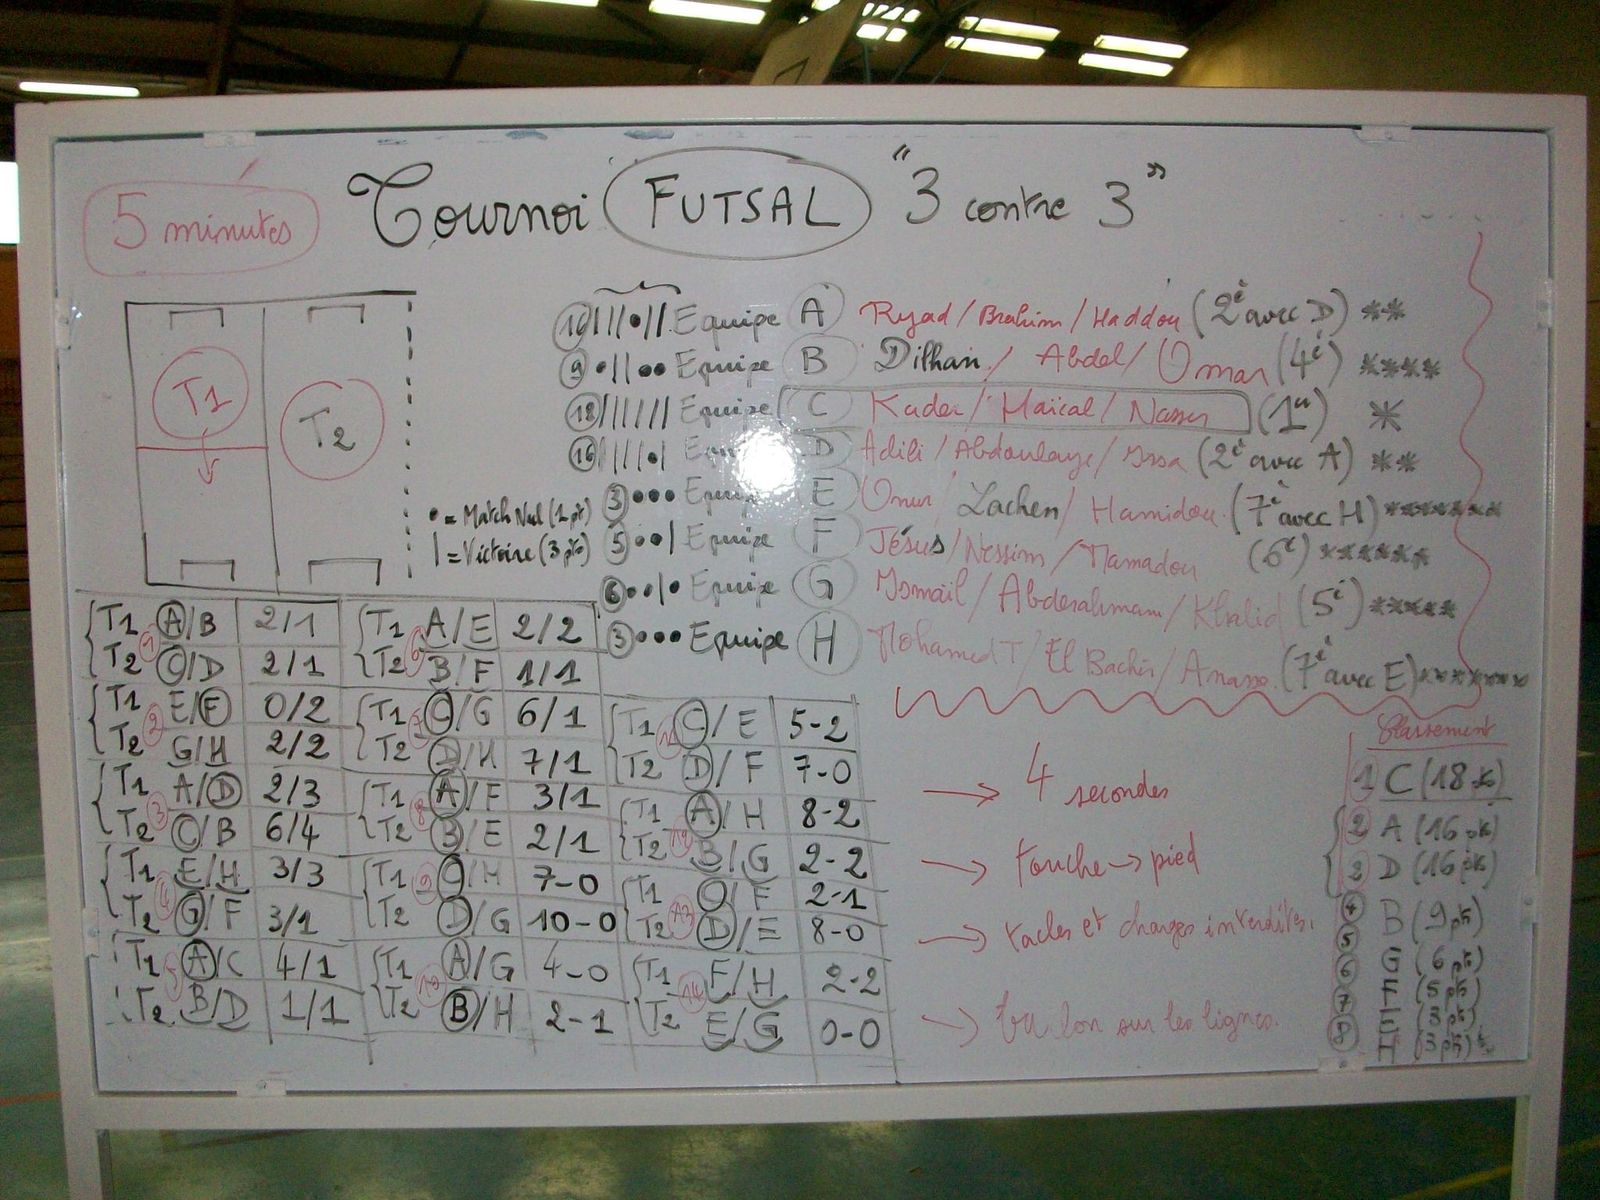 5 minutes
Tournoi FUTSAL "3 contre 3"
T1
T2
• = Match Nul (1 pt)
| = Victoire (3 pts)
16 |||•|| Equipe A Ryad / Brahim / Haddou (2è avec D) **
9 •||•• Equipe B Dilhan / Abdel / Omar (4è) ****
18 |||||| Equipe C Kader / Maïcal / Nasser (1er) *
16 ||||•| Equipe D Adili / Abdoulaye / Issa (2è avec A) **
3 ••• Equipe E Onur / Lachen / Hamidou (7è avec H) *******
5 ••| Equipe F Jésus / Nessim / Mamadou (6è) ******
6 ••|• Equipe G Ismaïl / Abderahmam / Khalid (5è) *****
3 ••• Equipe H Mohamed T / El Bachir / Anasse (7è avec E) *******
1 T1 A/B 2/1
T2 C/D 2/1
2 T1 E/F 0/2
T2 G/H 2/2
3 T1 A/D 2/3
T2 C/B 6/4
4 T1 E/H 3/3
T2 G/F 3/1
5 T1 A/C 4/1
T2 B/D 1/1
6 T1 A/E 2/2
T2 B/F 1/1
7 T1 C/G 6/1
T2 D/H 7/1
8 T1 A/F 3/1
T2 B/E 2/1
9 T1 C/H 7-0
T2 D/G 10-0
10 T1 A/G 4-0
T2 B/H 2-1
11 T1 C/E 5-2
T2 D/F 7-0
12 T1 A/H 8-2
T2 B/G 2-2
13 T1 C/F 2-1
T2 D/E 8-0
14 T1 F/H 2-2
T2 E/G 0-0
→ 4 secondes
→ touche → pied
→ tacles et charges interdites.
→ ballon sur les lignes.
Classement
1 C (18 pts)
2 A (16 pts)
2 D (16 pts)
4 B (9 pts)
5 G (6 pts)
6 F (5 pts)
7 E (3 pts)
8 H (3 pts)